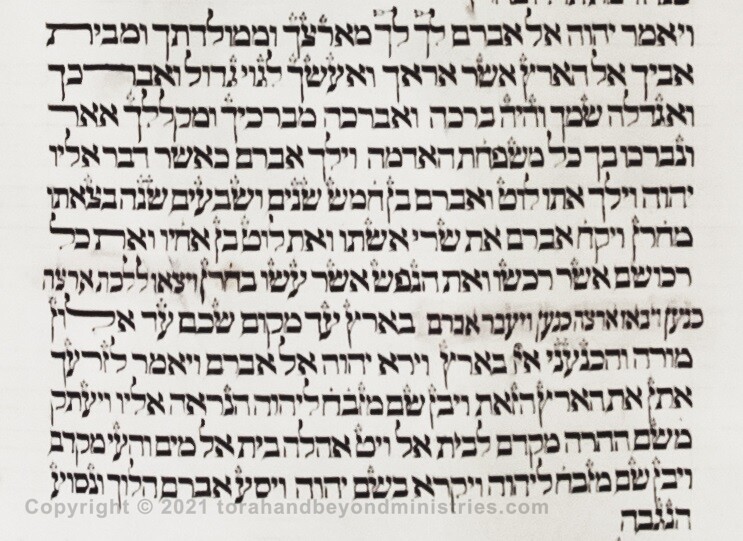 ויאמר יהוה אל אברם לך לך מארצך וממולדתך ומבית
אביך אל הארץ אשר אראך ואעשך לגוי גדול ואברכך
ואגדלה שמך והיה ברכה ואברכה מברכיך ומקללך אאר
ונברכו בך כל משפחת האדמה וילך אברם כאשר דבר אליו
יהוה וילך אתו לוט ואברם בן חמש שנים ושבעים שנה בצאתו
מחרן ויקח אברם את שרי אשתו ואת לוט בן אחיו ואת כל
רכושם אשר רכשו ואת הנפש אשר עשו בחרן ויצאו ללכת ארצה
כנען ויבאו ארצה כנען ויעבר אברם בארץ עד מקום שכם עד אלון
מורה והכנעני אז בארץ וירא יהוה אל אברם ויאמר לזרעך
אתן את הארץ הזאת ויבן שם מזבח ליהוה הנראה אליו ויעתק
משם ההרה מקדם לבית אל ויט אהלה בית אל מים והעי מקדם
ויבן שם מזבח ליהוה ויקרא בשם יהוה ויסע אברם הלוך ונסוע
Copyright © 2021 torahandbeyondministries.com
הנגבה